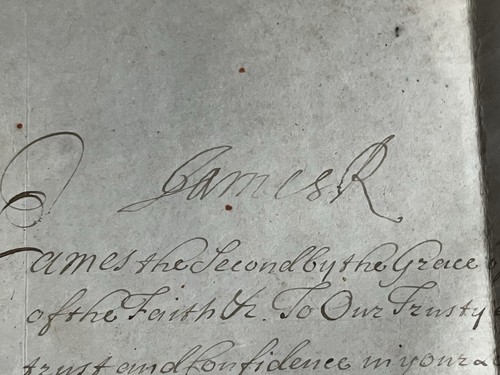 James R
James the Second by the Grace
of the Faith &c. To Our Trusty
trust and Confidence in your